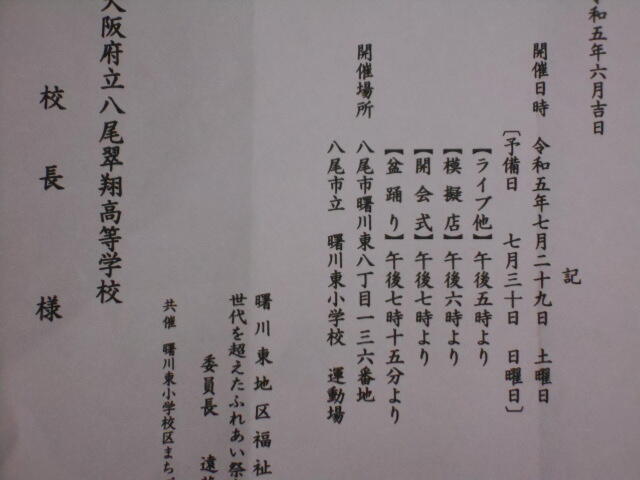 記
開催日時 令和五年七月二十九日 土曜日
〔予備日 七月三十日 日曜日〕
【ライブ他】午後五時より
【模擬店】午後六時より
【開会式】午後七時より
【盆踊り】午後七時十五分より
開催場所 八尾市曙川東八丁目一三六番地
八尾市立 曙川東小学校 運動場
和五年六月吉日
曙川東地区福祉
世代を超えたふれあい祭
委員長 遠
共催 曙川東小学校区まち
大阪府立八尾翠翔高等学校
校長 様